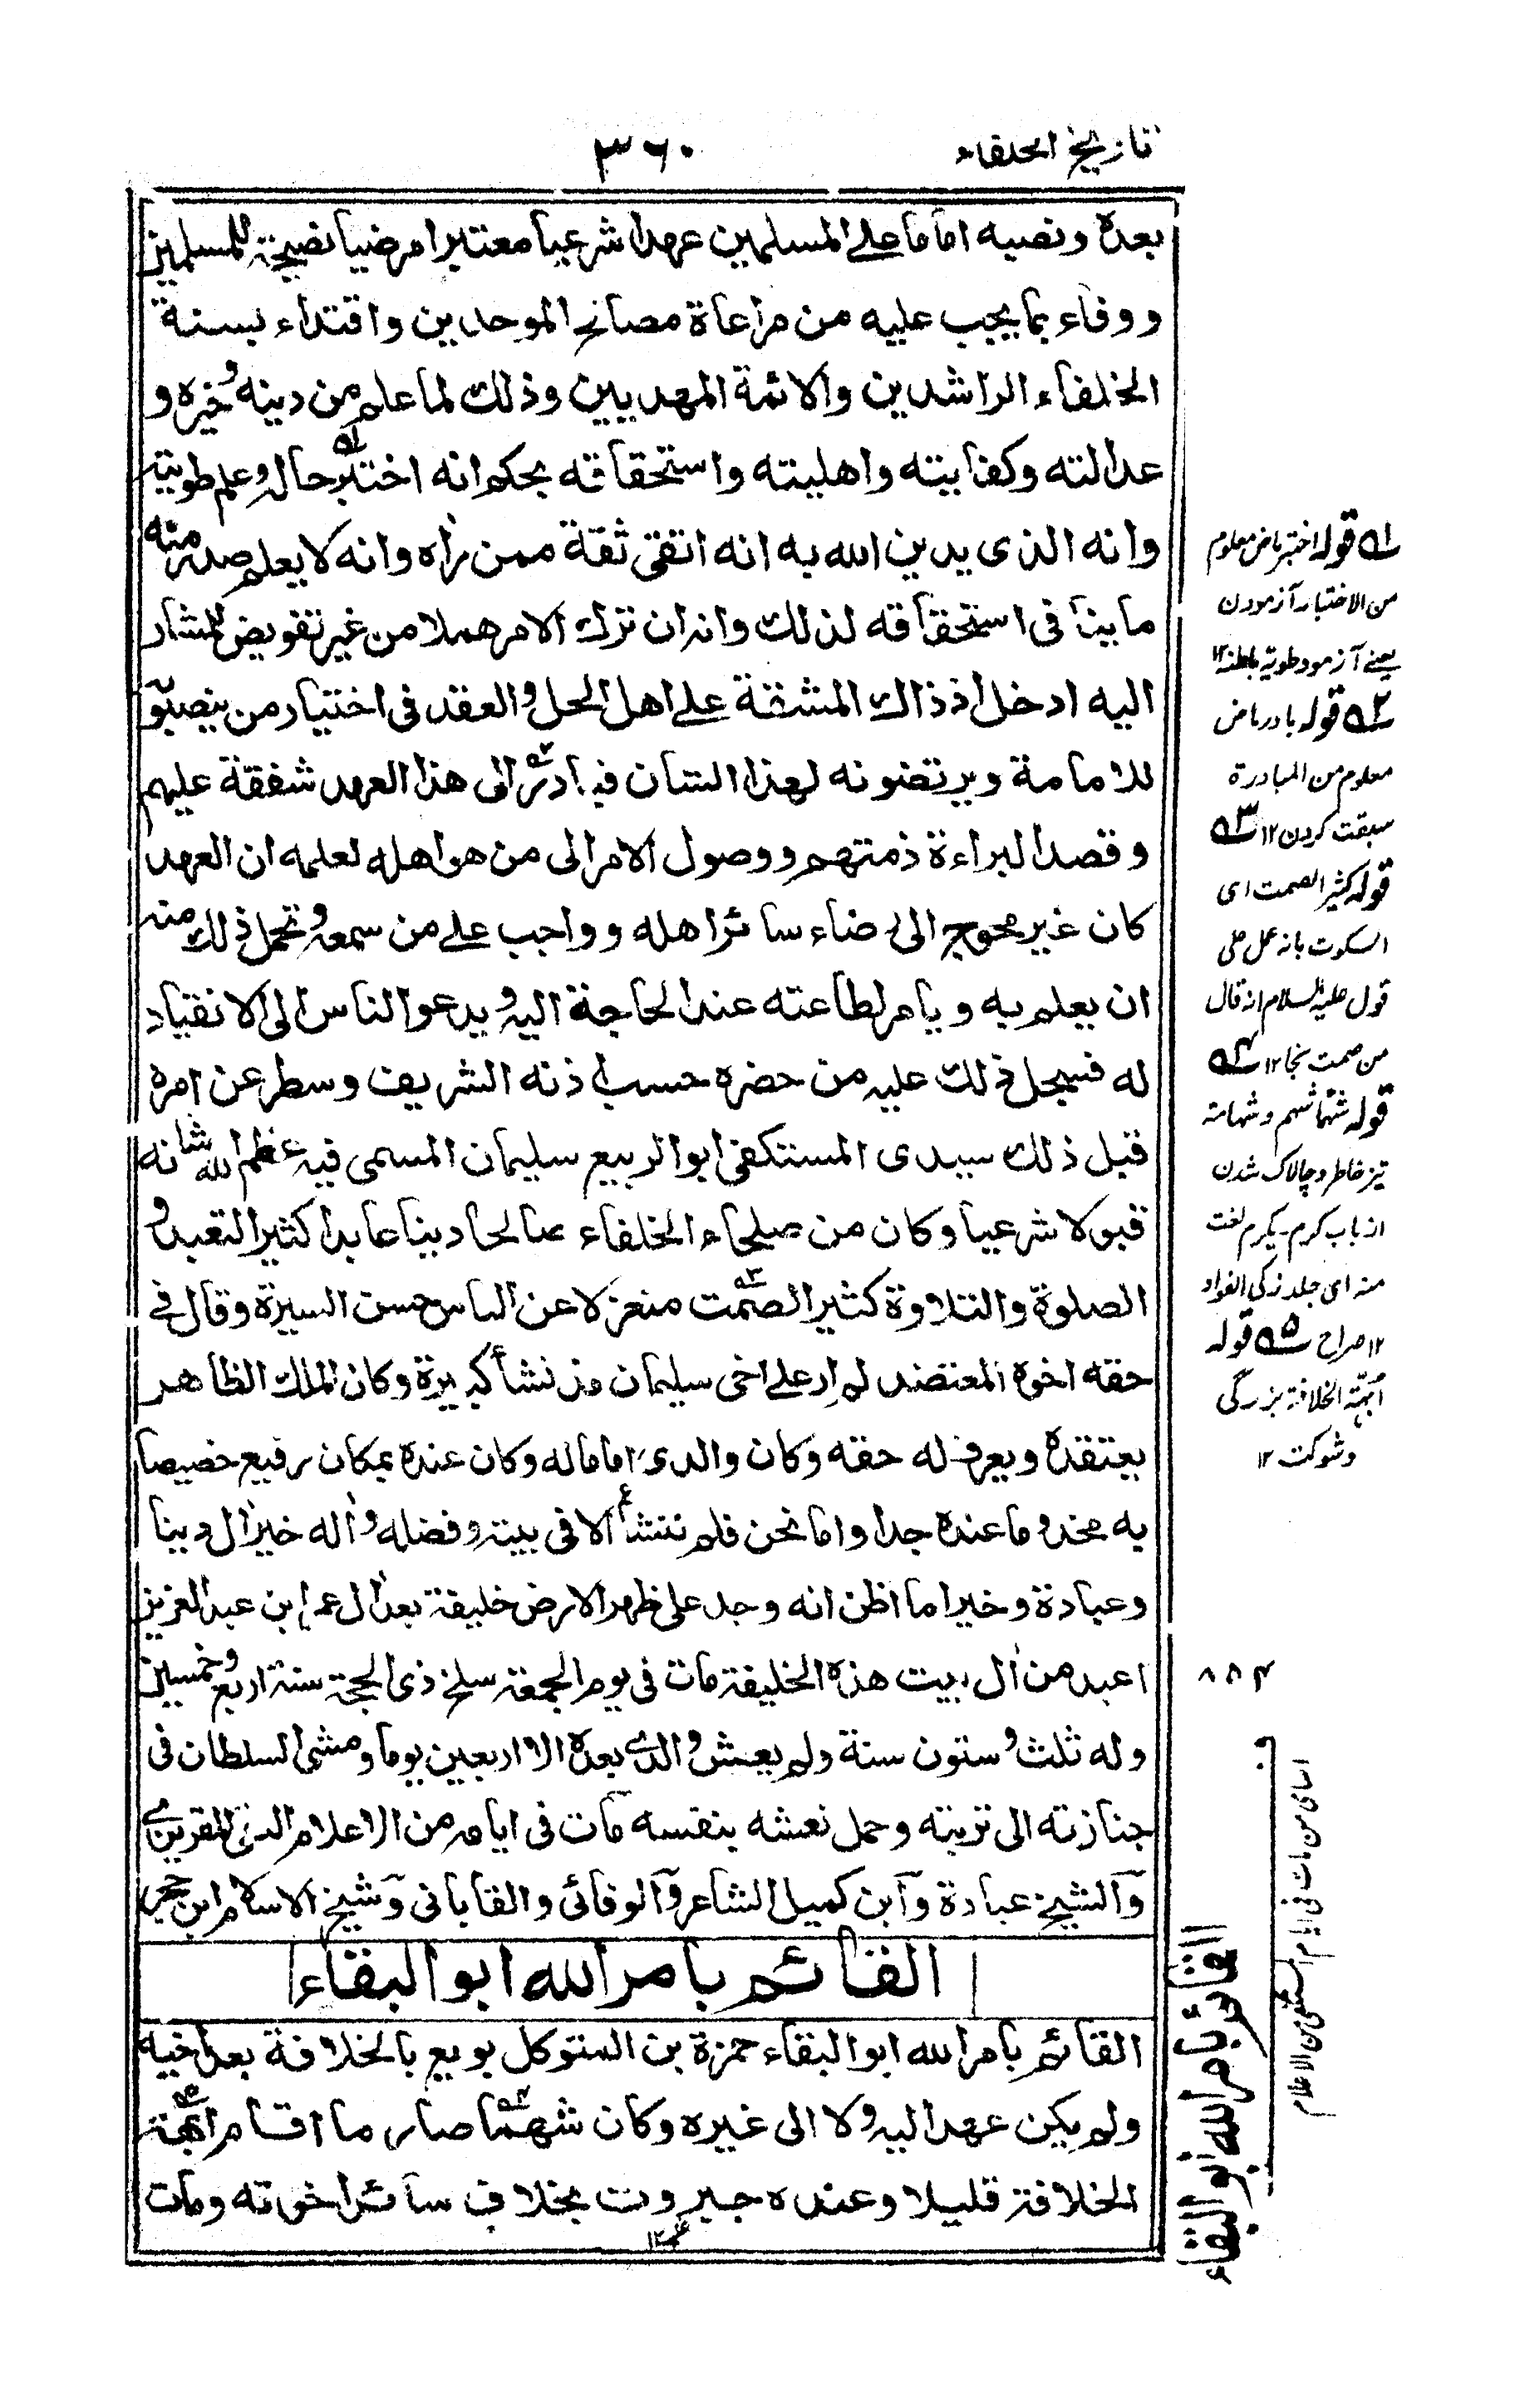 تاريخ الخلفاء
٣٦٠
بعده ونصبه اماما على المسلمين عهدا شرعيا معتبرا مرضيا نصيحة للمسلمين
ووفاء بما يجب عليه من مراعاة مصالح الموحدين واقتداء بسنة
الخلفاء الراشدين والائمة المهديين وذلك لما علم من دينه وخيره و
عدالته وكفايته واهليته واستحقاقه بحكم انه اختبر حاله وعلم طويته
وانه الذى يدين الله به انه اتقى ثقة ممن راٰه وانه لا يعلم صدر منه
ما ينافى استحقاقه لذلك وانه ان ترك الامر هملا من غير تفويض للمشار
اليه ادخل اذ ذاك المشقة على اهل الحل والعقد فى اختيار من ينصبونه
للامامة ويرتضونه لهذا الشان فبادر الى هذا العهد شفقة عليهم
وقصدا لبراءة ذمتهم ووصول الامر الى من هو اهله لعلمه ان العهد
كان غير محوج الى رضاء سائر اهله وواجب على من سمعه وتحمل ذلك منه
ان يعلم به ويامر لطاعته عند الحاجة اليه ويدعو الناس الى الانقياد
له فسجل ذلك عليه من حضره حسب اذنه الشريف وسطر عن امره
قبل ذلك سيدى المستكفى ابو الربيع سليمان المسمى فيه عظم الله شانه
قبولا شرعيا وكان من صلحاء الخلفاء صالحا دينا عابدا كثير التعبد و
الصلوة والتلاوة كثير الصمت منعزلا عن الناس حسن السيرة وقال فى
حقه اخوه المعتضد لم ار على اخى سليمان منذ نشأ كبيرة وكان الملك الظاهر
يعتقده ويعرف له حقه وكان والدى اماما له وكان عنده بمكان رفيع خصيصا
به مخدوما عنده جدا واما نحن فلم ننشأ الا فى بيته وفضله واٰله خير اٰل دينا
وعبادة وخيرا ما اظن انه وجد على ظهر الارض خليفة بعد اٰل عمر بن عبد العزيز
اعبد من اٰل بيت هذه الخليفة مات فى يوم الجمعة سلخ ذى الحجة سنة اربع وخمسين
وله ثلث وستون سنة ولم يعش والدى بعده الا اربعين يوما ومشى السلطان فى
جنازته الى تربته وحمل نعشه بنفسه مات فى ايامه من الاعلام التقى المقريزى
والشيخ عبادة وابن كميل الشاعر والوفائى والقاياتى وشيخ الاسلام ابن حجر
القائم بامر الله ابو البقاء
القائم بامر الله ابو البقاء حمزة بن المتوكل بويع بالخلافة بعد اخيه
ولم يكن عهد اليه ولا الى غيره وكان شهما صارما اقام ابهة
الخلافة قليلا وعنده جبروت بخلاف سائر اخوته ومات
٥١ قوله اختبر ماض معلوم
من الاختبار آزمودن
يعنے آزمود طوية باطنه ١٢
٥٢ قوله بادر ماض
معلوم من المبادرة
سبقت كردن ١٢ ٥٣
قوله كثير الصمت اى
السكوت بانه عمل على
قول عليه السلام انه قال
من صمت نجا ١٢ ٥٤
قوله شهما شهم وشهامة
تيز خاطر وچالاك شدن
از باب كرم يكرم لغت
منه اى جلد ذكى الفواد
١٢ صراح ٥٥ قوله
ابهة الخلافة بزرگى
وشوكت ١٢
٨٥٤
اسامى من مات فى ايام المستكفى من الاعلام
القائم بامر الله ابو البقاء